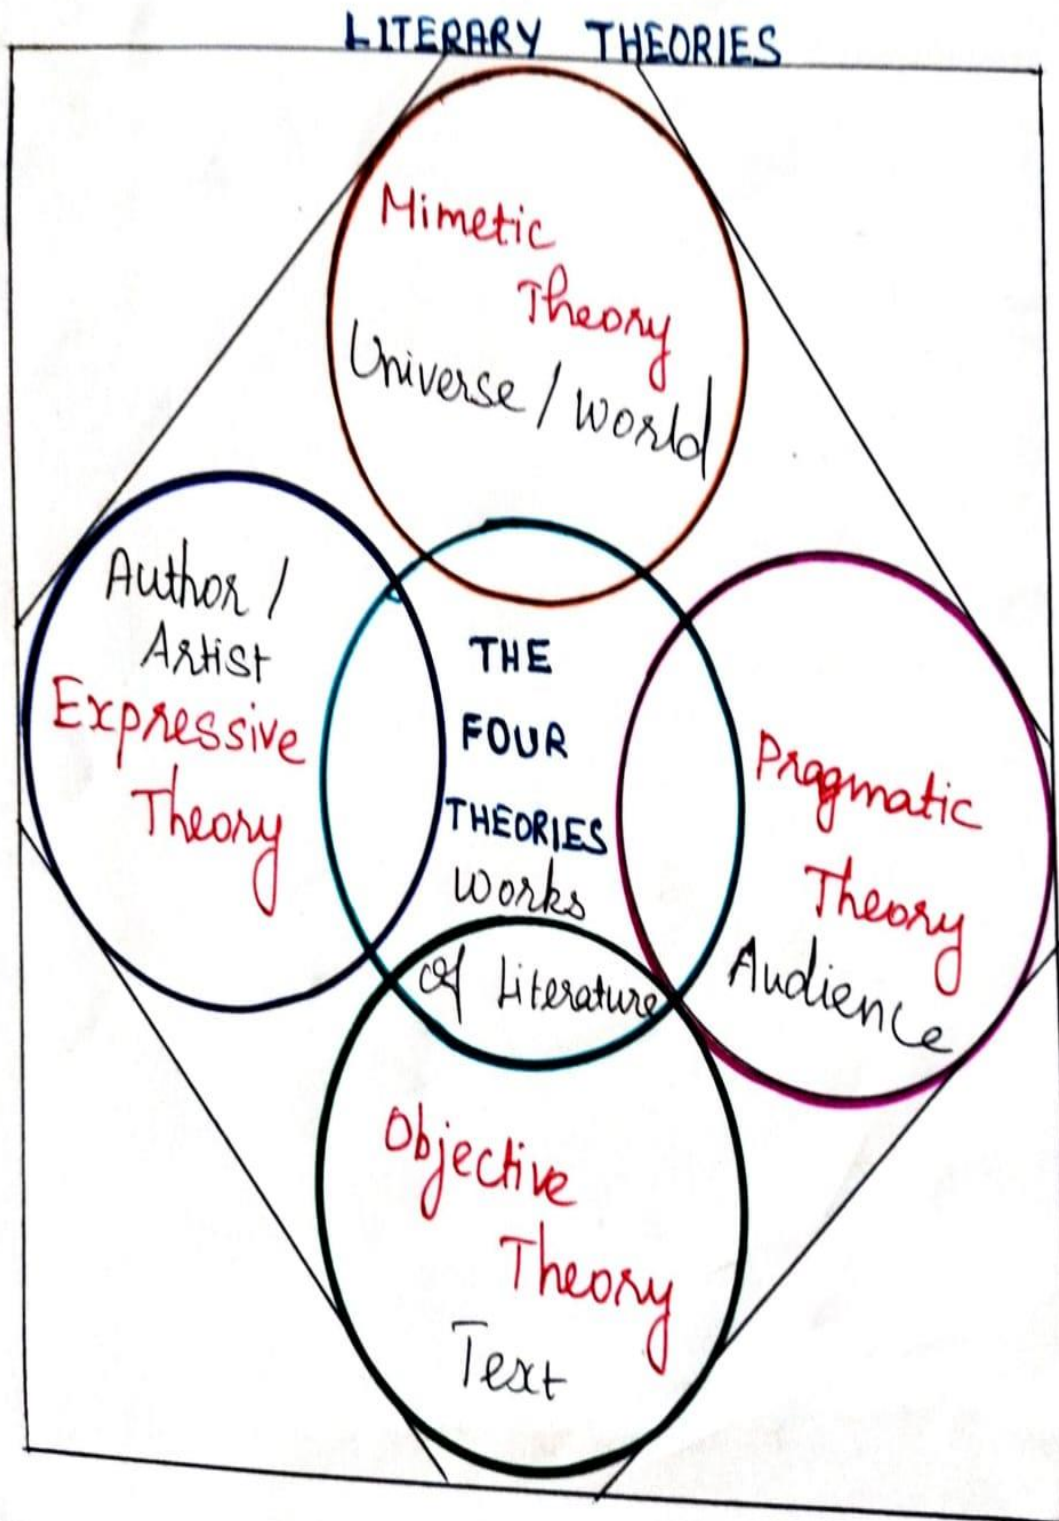 LITERARY THEORIES
Mimetic
Theory
Universe / World
Author /
Artist
Expressive
Theory
THE
FOUR
THEORIES
Works
of Literature
Pragmatic
Theory
Audience
Objective
Theory
Text